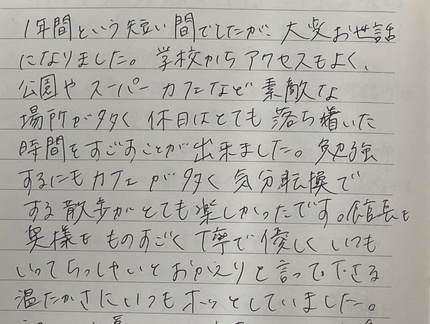 1年間という短い間でしたが、大変お世話
になりました。学校からアクセスもよく、
公園や スーパー カフェなど 素敵な
場所が多く 休日はとても 落ち着いた
時間をすごすことが出来ました。勉強
するにもカフェが多く 気分転換で
する散歩がとても楽しかったです。館長も
奥様も ものすごく 丁寧で優しく いつも
いってらっしゃいと おかえりと言って下さる
温たかさにいつもホッとしていました。